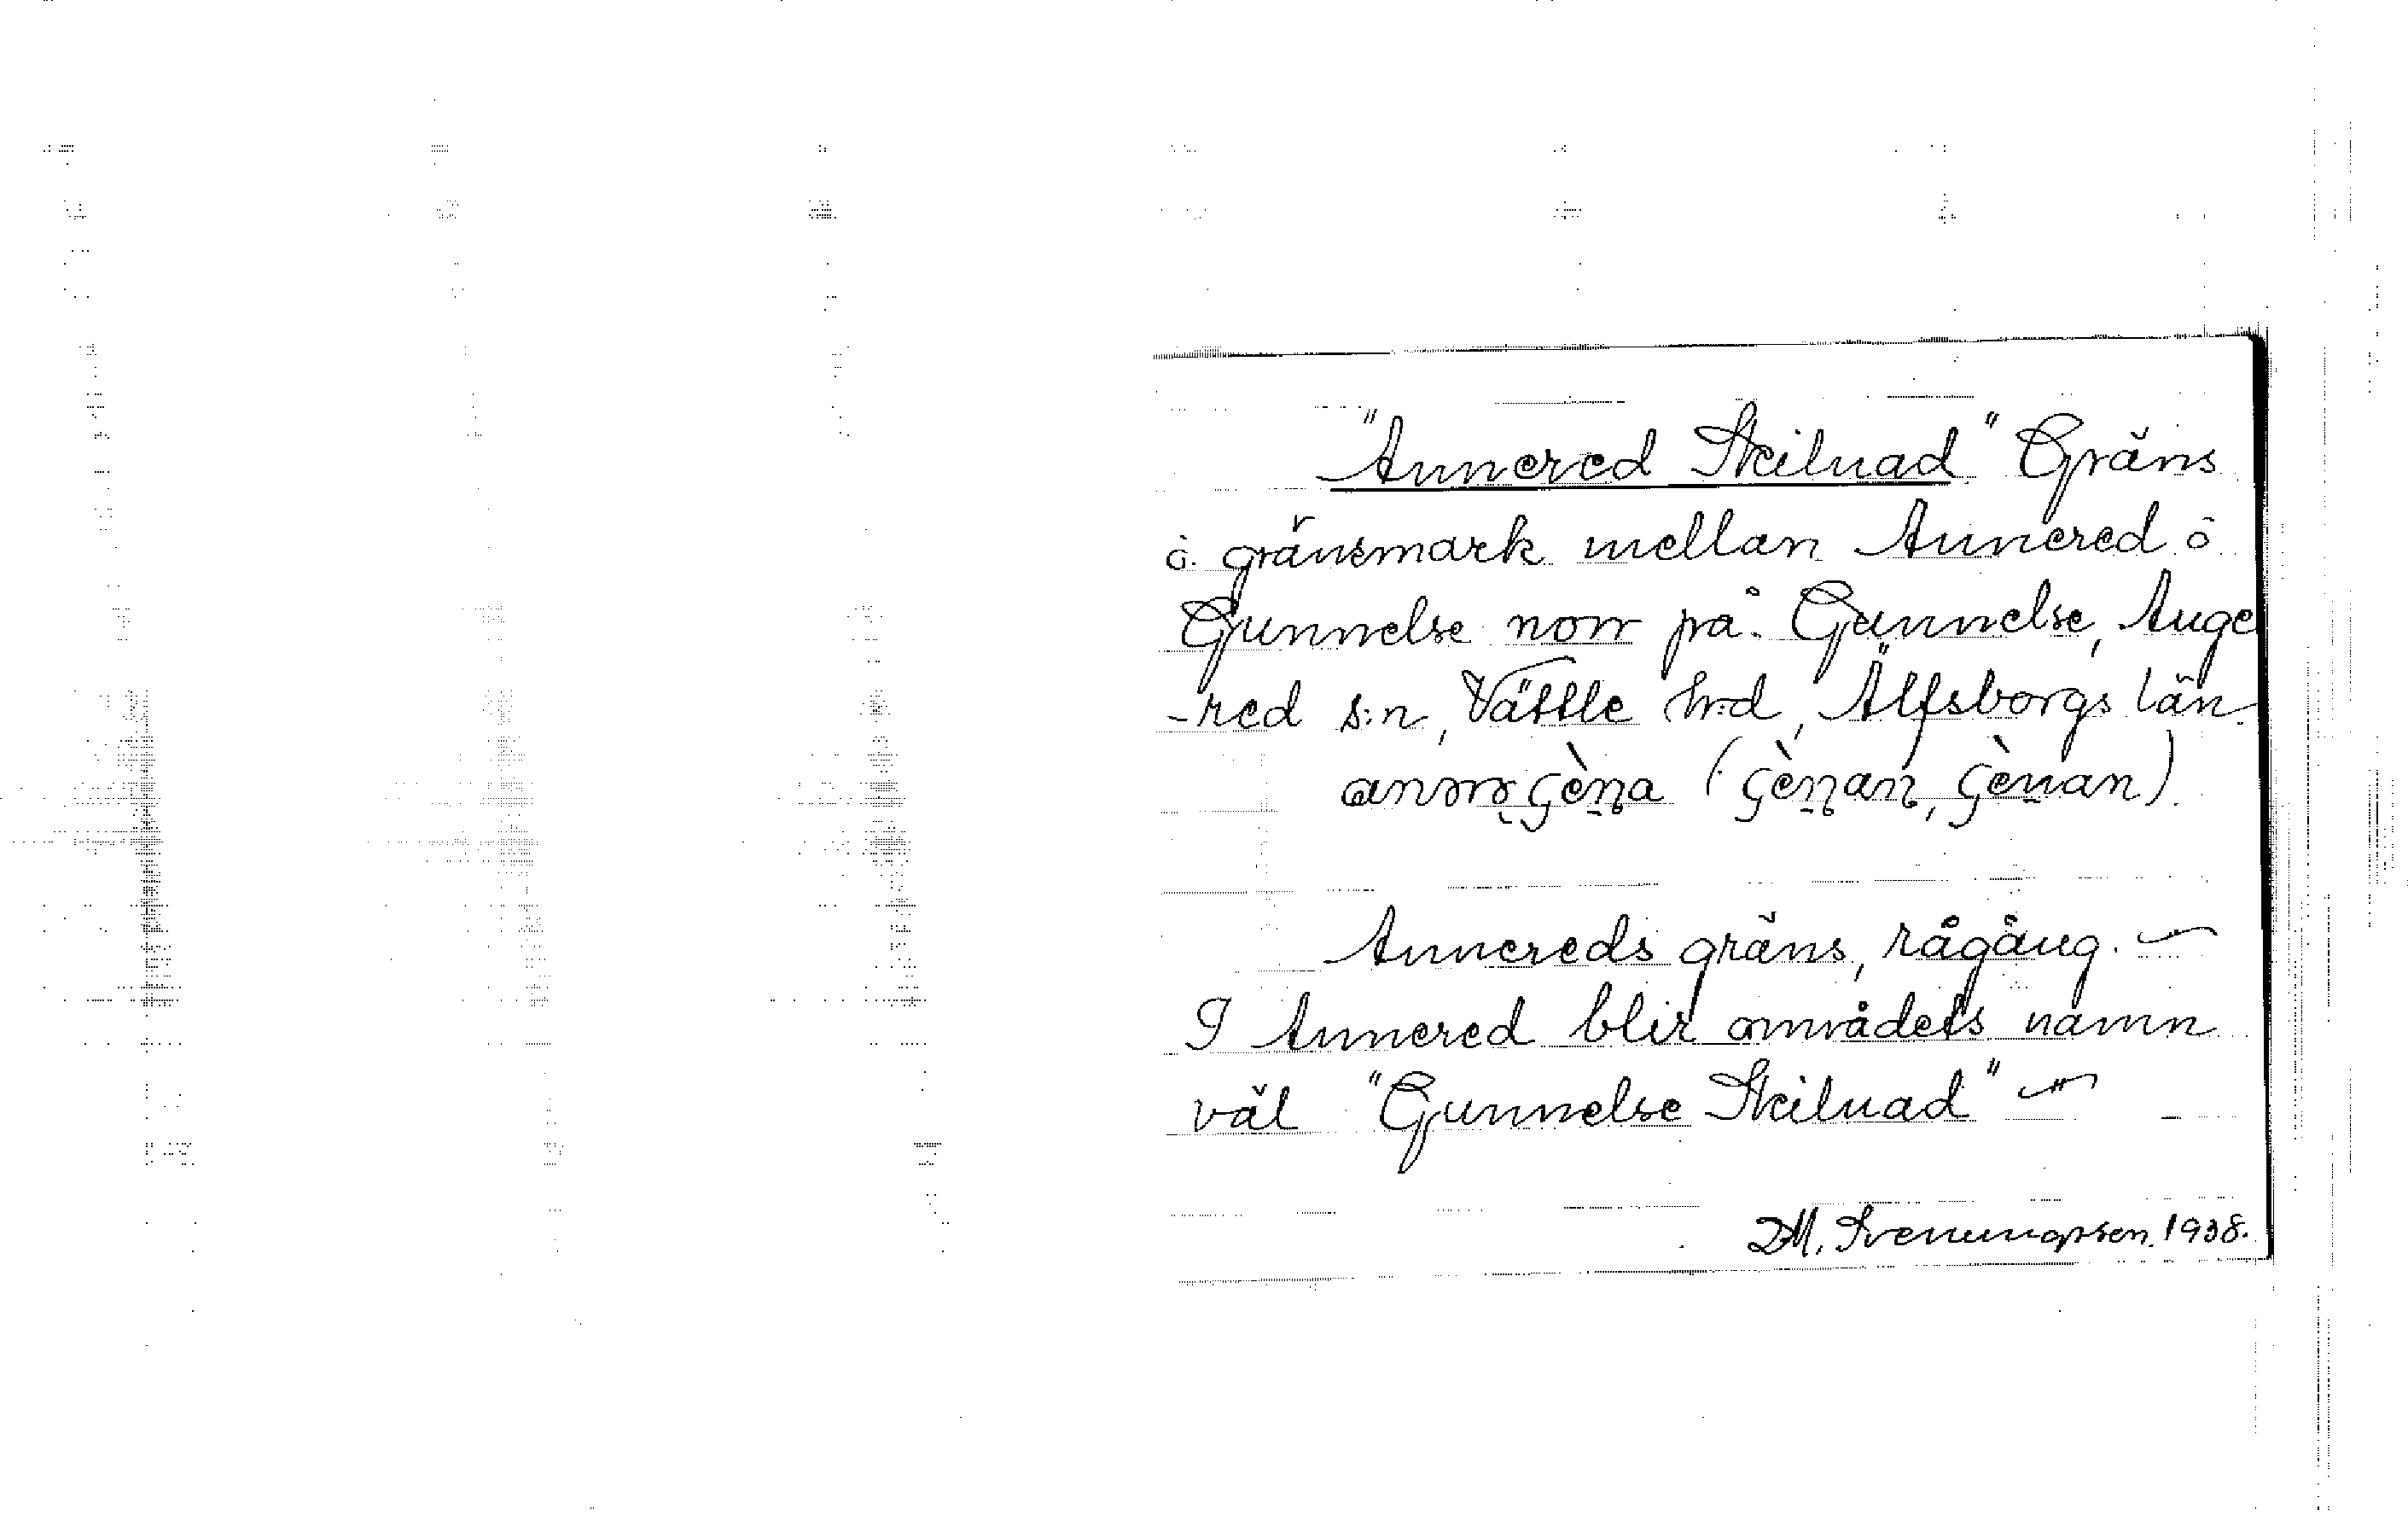 "Annered Skilnad" Gräns
o. gränsmark mellan Annered o
Gunnelse norr på. Gunnelse, Ange
-red s:n, Vättle h:d, Älfsborgs län.
Annereds gräns, rågång. —
I Annered blir områdets namn
väl "Gunnelse Skilnad" —
D.M. Svenungsson. 1938.